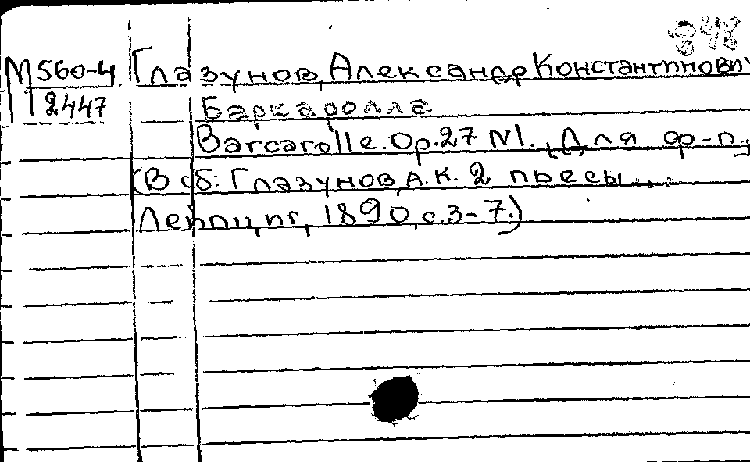 848
М560-4 Глазунов, Александр Константинович
2447 Баркаролла
Barcarolle. Op.27 N1., Для ф-п.,
(В сб. Глазунов, А.К. 2 пьесы...
Лейпциг, 1890, с.3-7.)